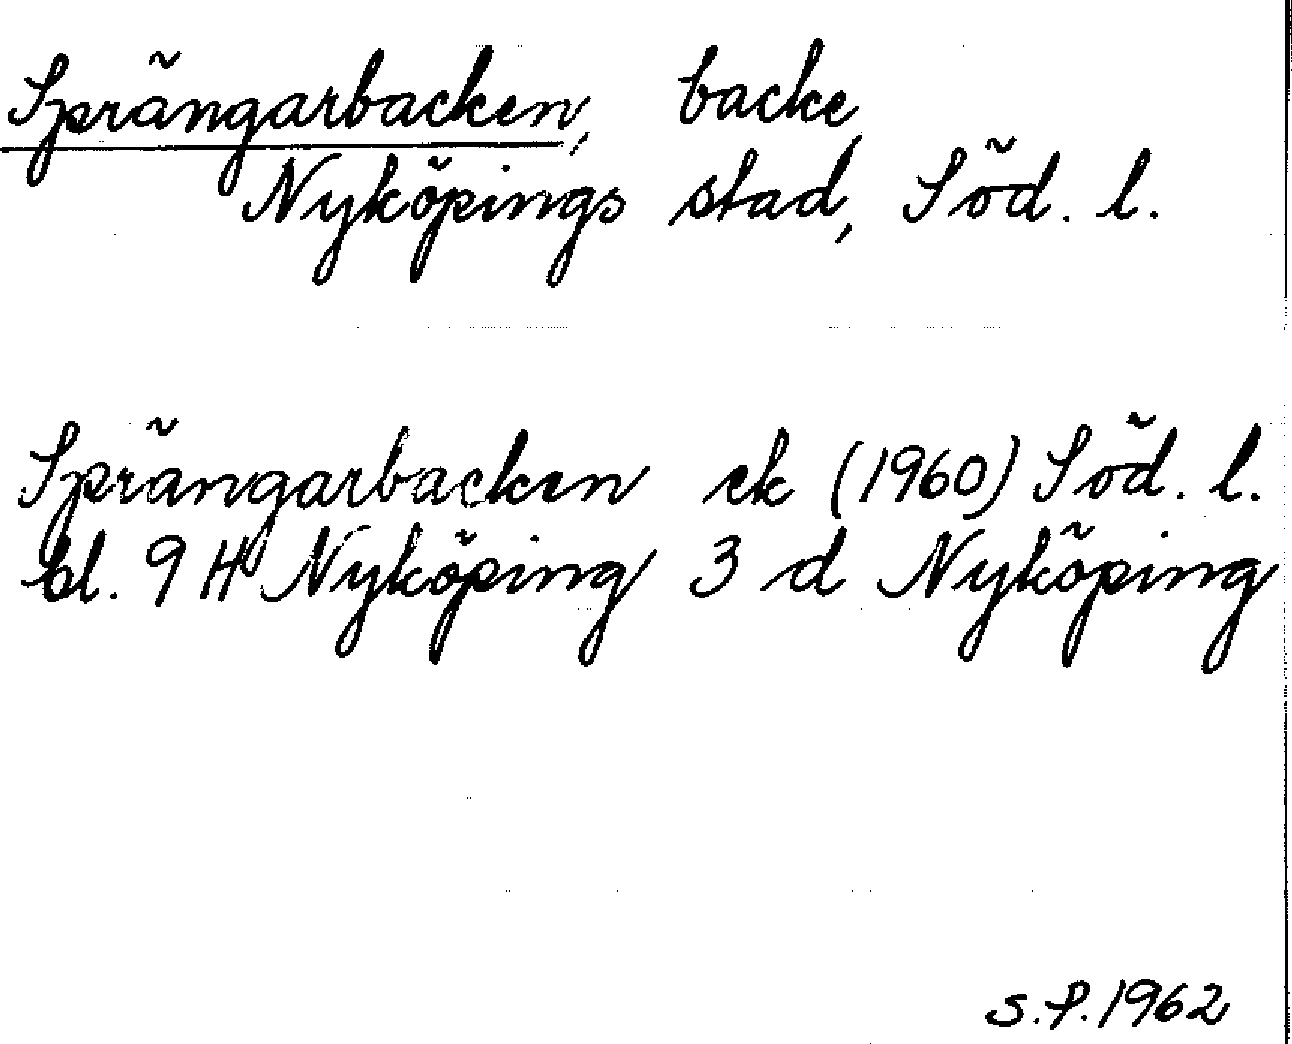 Sprängarbacken, backe,
Nyköpings stad, Söd. l.
Sprängarbacken ek (1960) Söd. l.
bl. 9 H Nyköping 3 d Nyköping
S.P. 1962